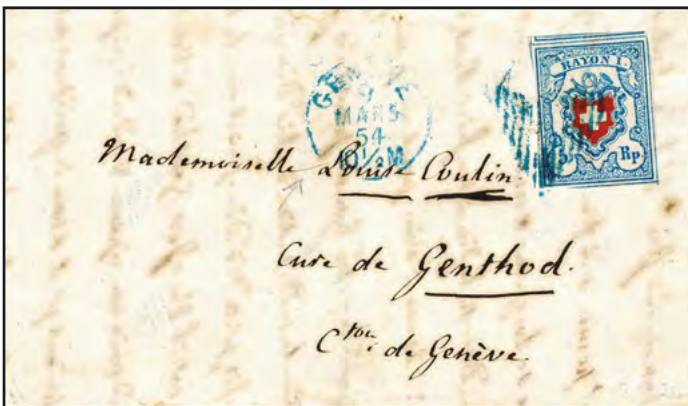 RAYON I
GENÈVE
9
MARS
54
10½M
5 Rp
Mademoiselle Louise Coulin
Cure de Genthod.
Cton. de Genève.